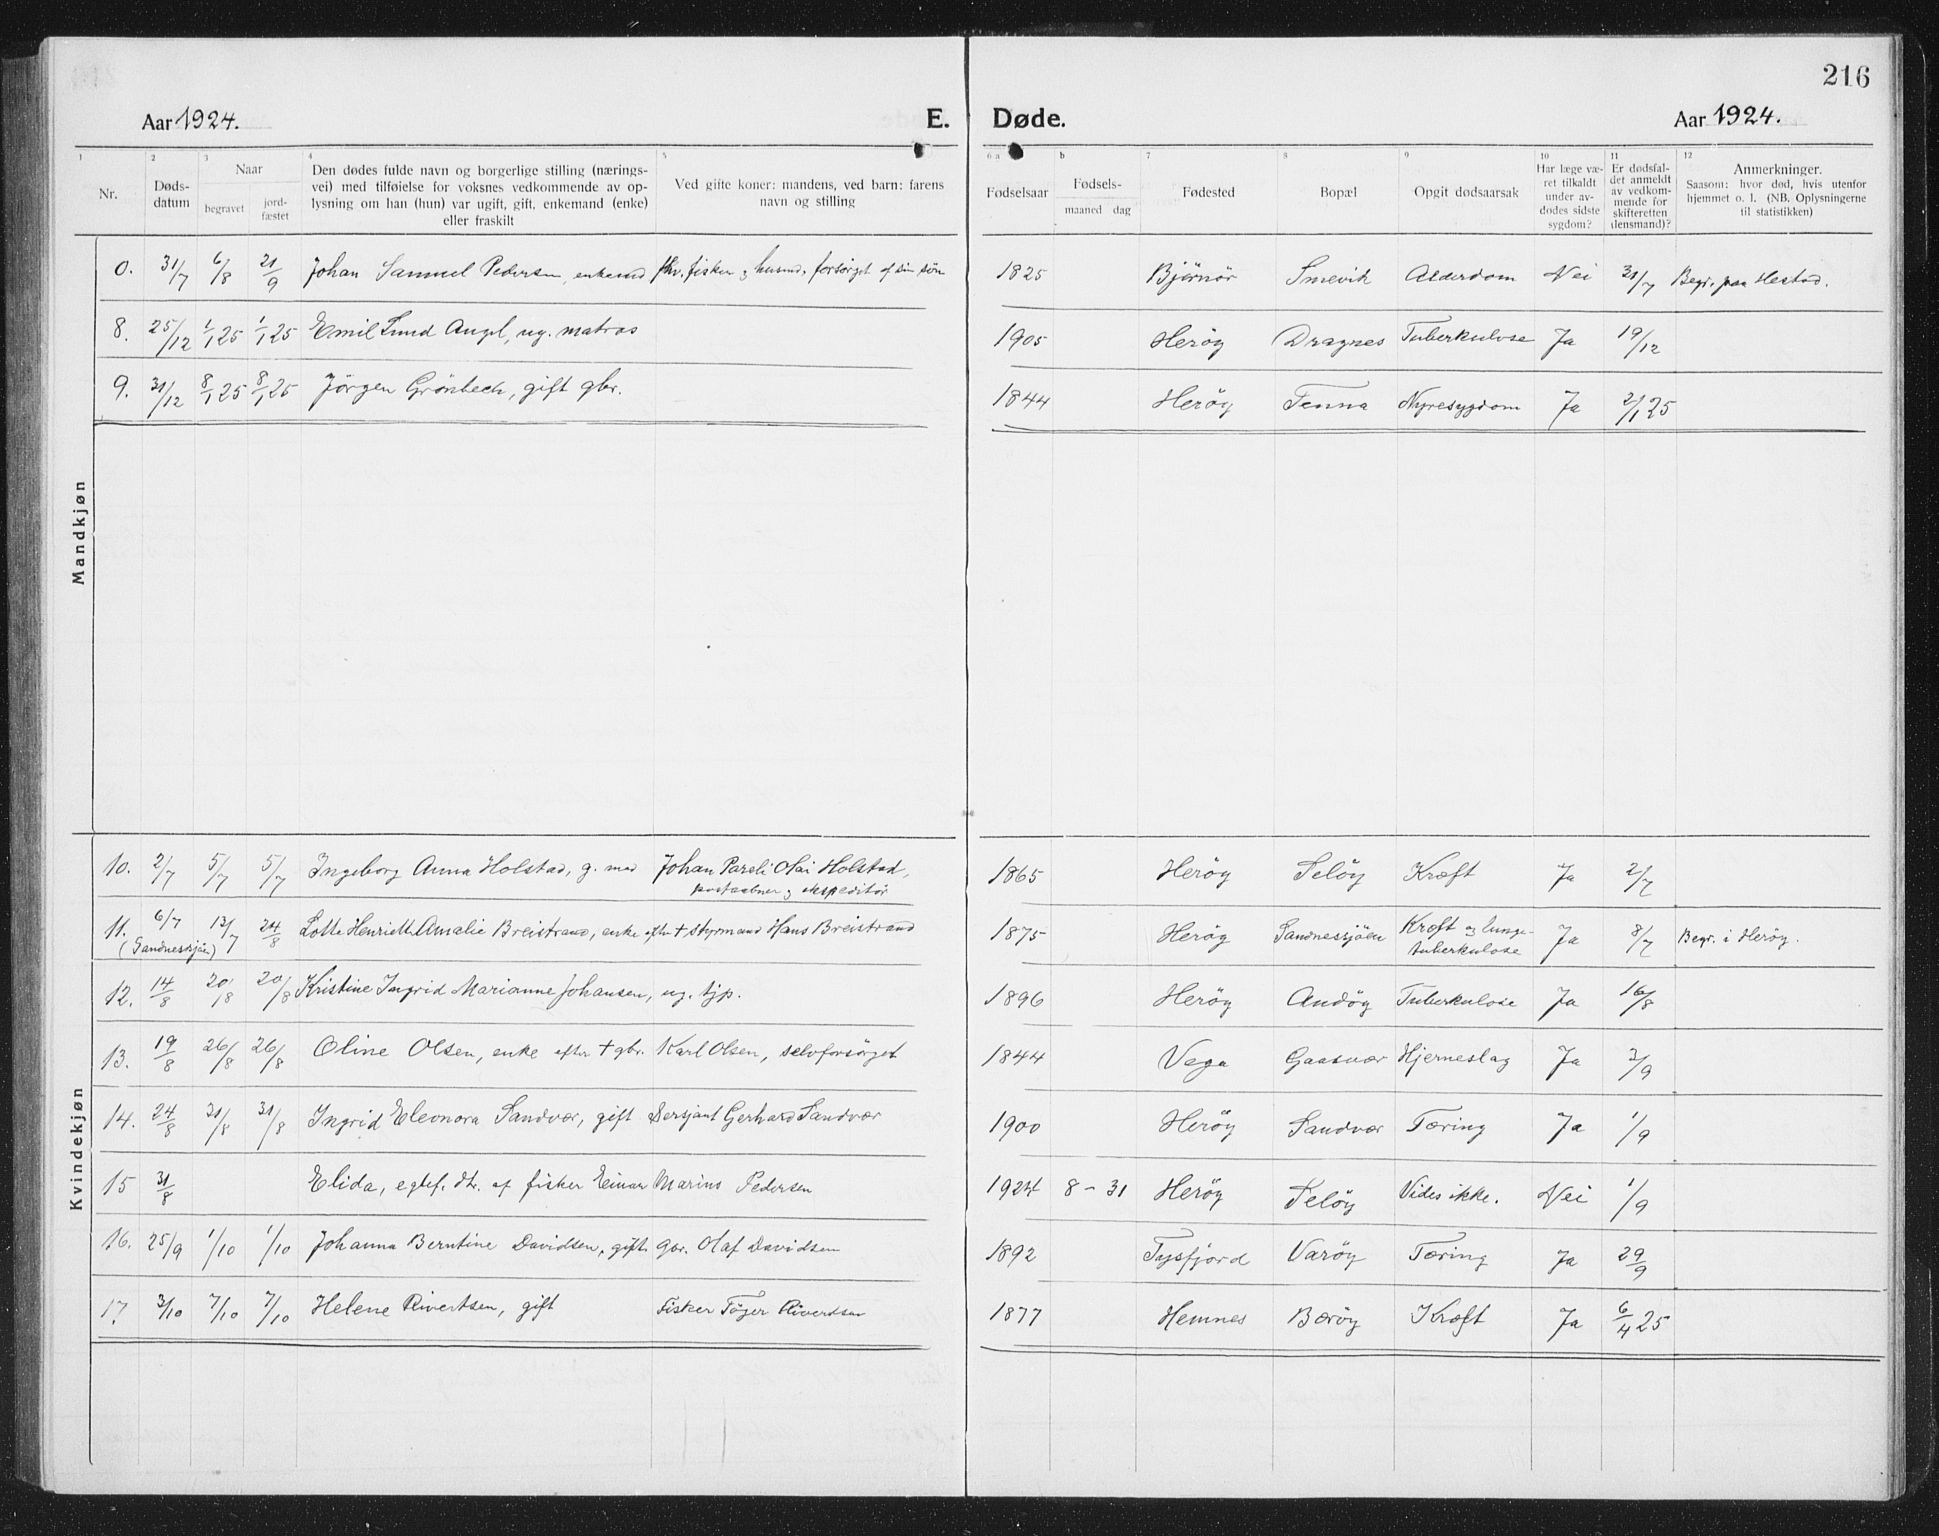 216
Aar 1924. E. Døde. Aar 1924.
1 2 3 4 5 6 a b 7 8 9 10 11 12
Nr.
Døds-
datum
Naar
begravet
jord-
fæstet
Den dødes fulde navn og borgerlige stilling (nærings-
vei) med tilføielse for voksnes vedkommende av op-
lysning om han (hun) var ugift, gift, enkemand (enke)
eller fraskilt
Ved gifte koner: mandens, ved barn: farens
navn og stilling
Fødselsaar
Fødsels-
maaned dag
Fødested
Bopæl
Opgit dødsaarsak
Har læge væ-
ret tilkaldt
under av-
dødes sidste
sygdom?
Er dødsfal-
det anmeldt
av vedkom-
mende for
skifteretten
(lensmand)?
Anmerkninger.
Saasom: hvor død, hvis utenfor
hjemmet o. l. (NB. Oplysningerne
til statistikken)
Mandkjøn
0. 31/7 6/8 21/9 Johan Samuel Pedersen, enkemd fhv. fisker og husmd. forsörget af sin sön 1825 Bjørnör Smevik Alderdom Nei 31/7 Begr. paa Hestad.
8. 25/12 1/1 25 1/1 25 Emil Lund Angel, ug. matros 1905 Heröy Dragnes Tuberkulose Ja 19/12
9. 31/12 8/1 25 8/1 25 Jörgen Grönbech, gift gbr. 1844 Heröy Tenna Nyresygdom Ja 2/1 25
Kvindekjøn
10. 2/7 5/7 5/7 Ingeborg Anna Holstad, g. med Johan Pareli Olai Holstad, 1865 Heröy Seløy Kræft Ja 2/7
postaabner og ekspeditör
11. 6/7 13/7 24/8 Lotte Henriette Amalie Breistrand, enke efter + styrmand Hans Breistrand 1875 Heröy Sandnessjöen Kræft og lunge- Ja 8/7 Begr. i Heröy.
(Sandnessjöen) tuberkulose
12. 14/8 20/8 20/8 Kristine Ingrid Marianne Johansen, ug. tjp. 1896 Heröy Andöy Tuberkulose Ja 16/8
13. 19/8 26/8 26/8 Oline Olsen, enke efter + gbr. Karl Olsen, selvforsörget 1844 Vega Gaasvær Hjerneslag Ja 3/9
14. 24/8 31/8 31/8 Ingrid Eleonora Sandvær, gift Sersjant Gerhard Sandvær 1900 Heröy Sandvær Tæring Ja 1/9
15 31/8 Elida, egtef. dtr. af fisker Einar Marius Pedersen 1924 8 - 31 Heröy Selöy Vides ikke. Nei 1/9
16. 25/9 1/10 1/10 Johanna Berntine Davidsen, gift gbr. Olaf Davidsen 1892 Tysfjord Varöy Tæring Ja 29/9
17. 3/10 7/10 7/10 Helene Rivertsen, gift Fisker Töger Rivertsen 1877 Hemnes Bæröy Kræft Ja 6/4 25